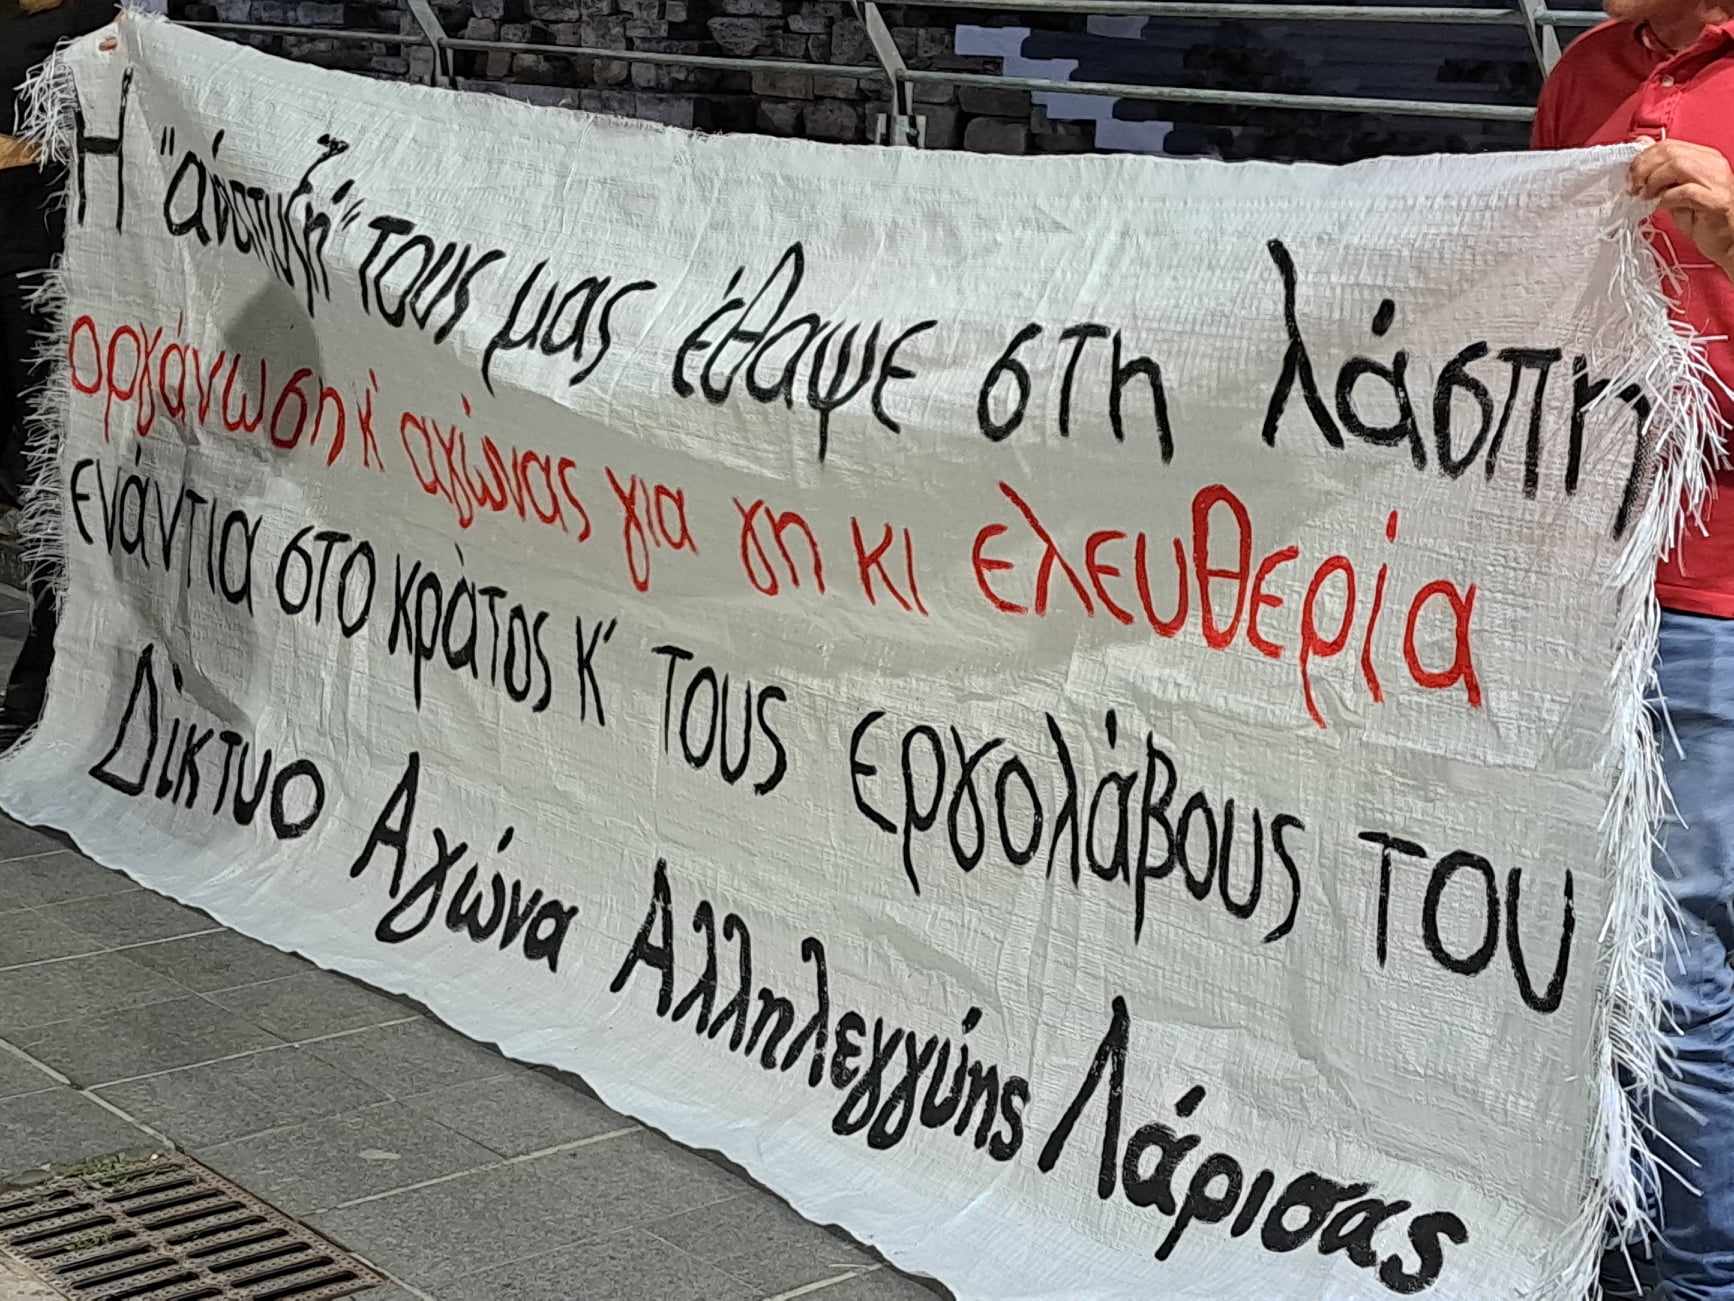 Η "άναπτυξή" τους μας έθαψε στη λάσπη
οργάνωση κ' αγώνας για γη κι ελευθερία
ενάντια στο κράτος κ' τους εργολάβους του
Δίκτυο Αγώνα Αλληλεγγύης Λάρισας